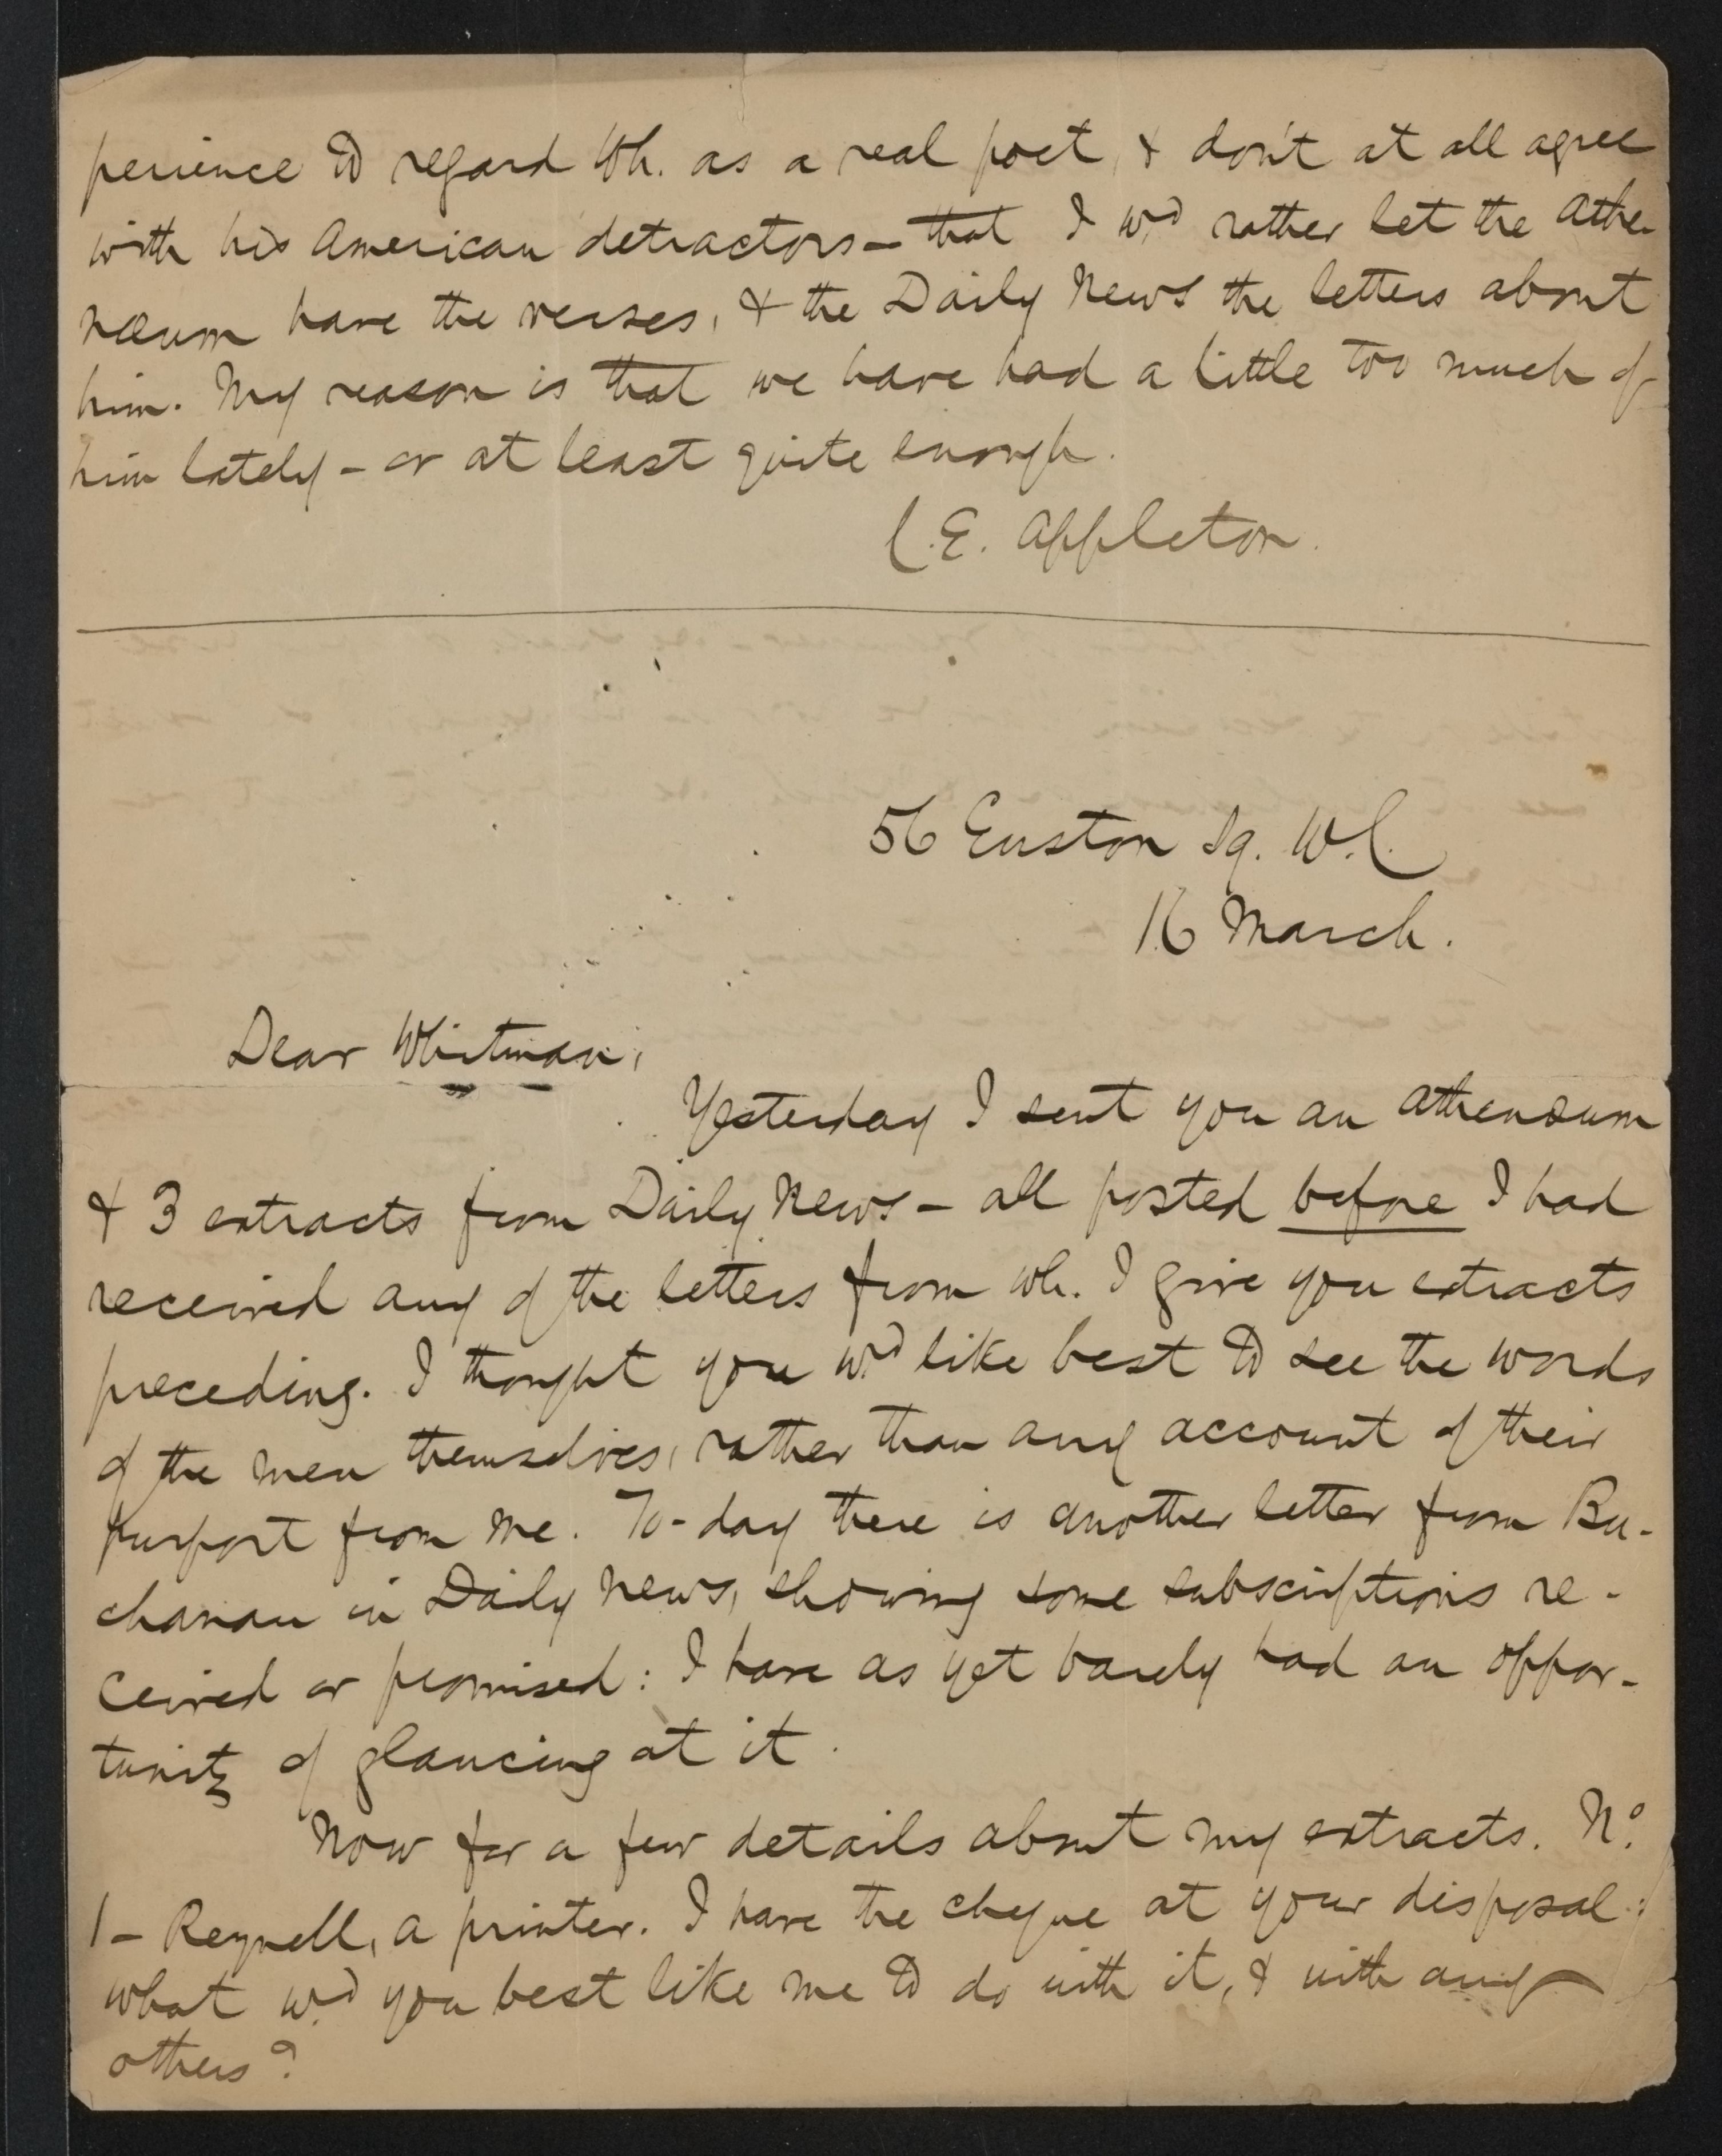 perience to regard Wh. as a real poet, & don't at all agree
with his American detractors — that I wd. rather let the Athe-
næum have the verses, & the Daily News the letters about
him. My reason is that we have had a little too much of
him lately — or at least quite enough.
C. E. Appleton.
56 Euston Sq. W.C.
16 March.
Dear Whitman,
Yesterday I sent you an Athenæum
& 3 extracts from Daily News — all posted before I had
received any of the letters from wh. I give you extracts
preceding. I thought you wd. like best to see the words
of the men themselves, rather than any account of their
purport from me. To-day there is another letter from Bu-
chanan in Daily News, showing some subscriptions re-
ceived or promised: I have as yet barely had an oppor-
tunity of glancing at it.
Now for a few details about my extracts. No.
1 — Reynell, a printer. I have the cheque at your disposal:
what wd. you best like me to do with it, & with any
others?